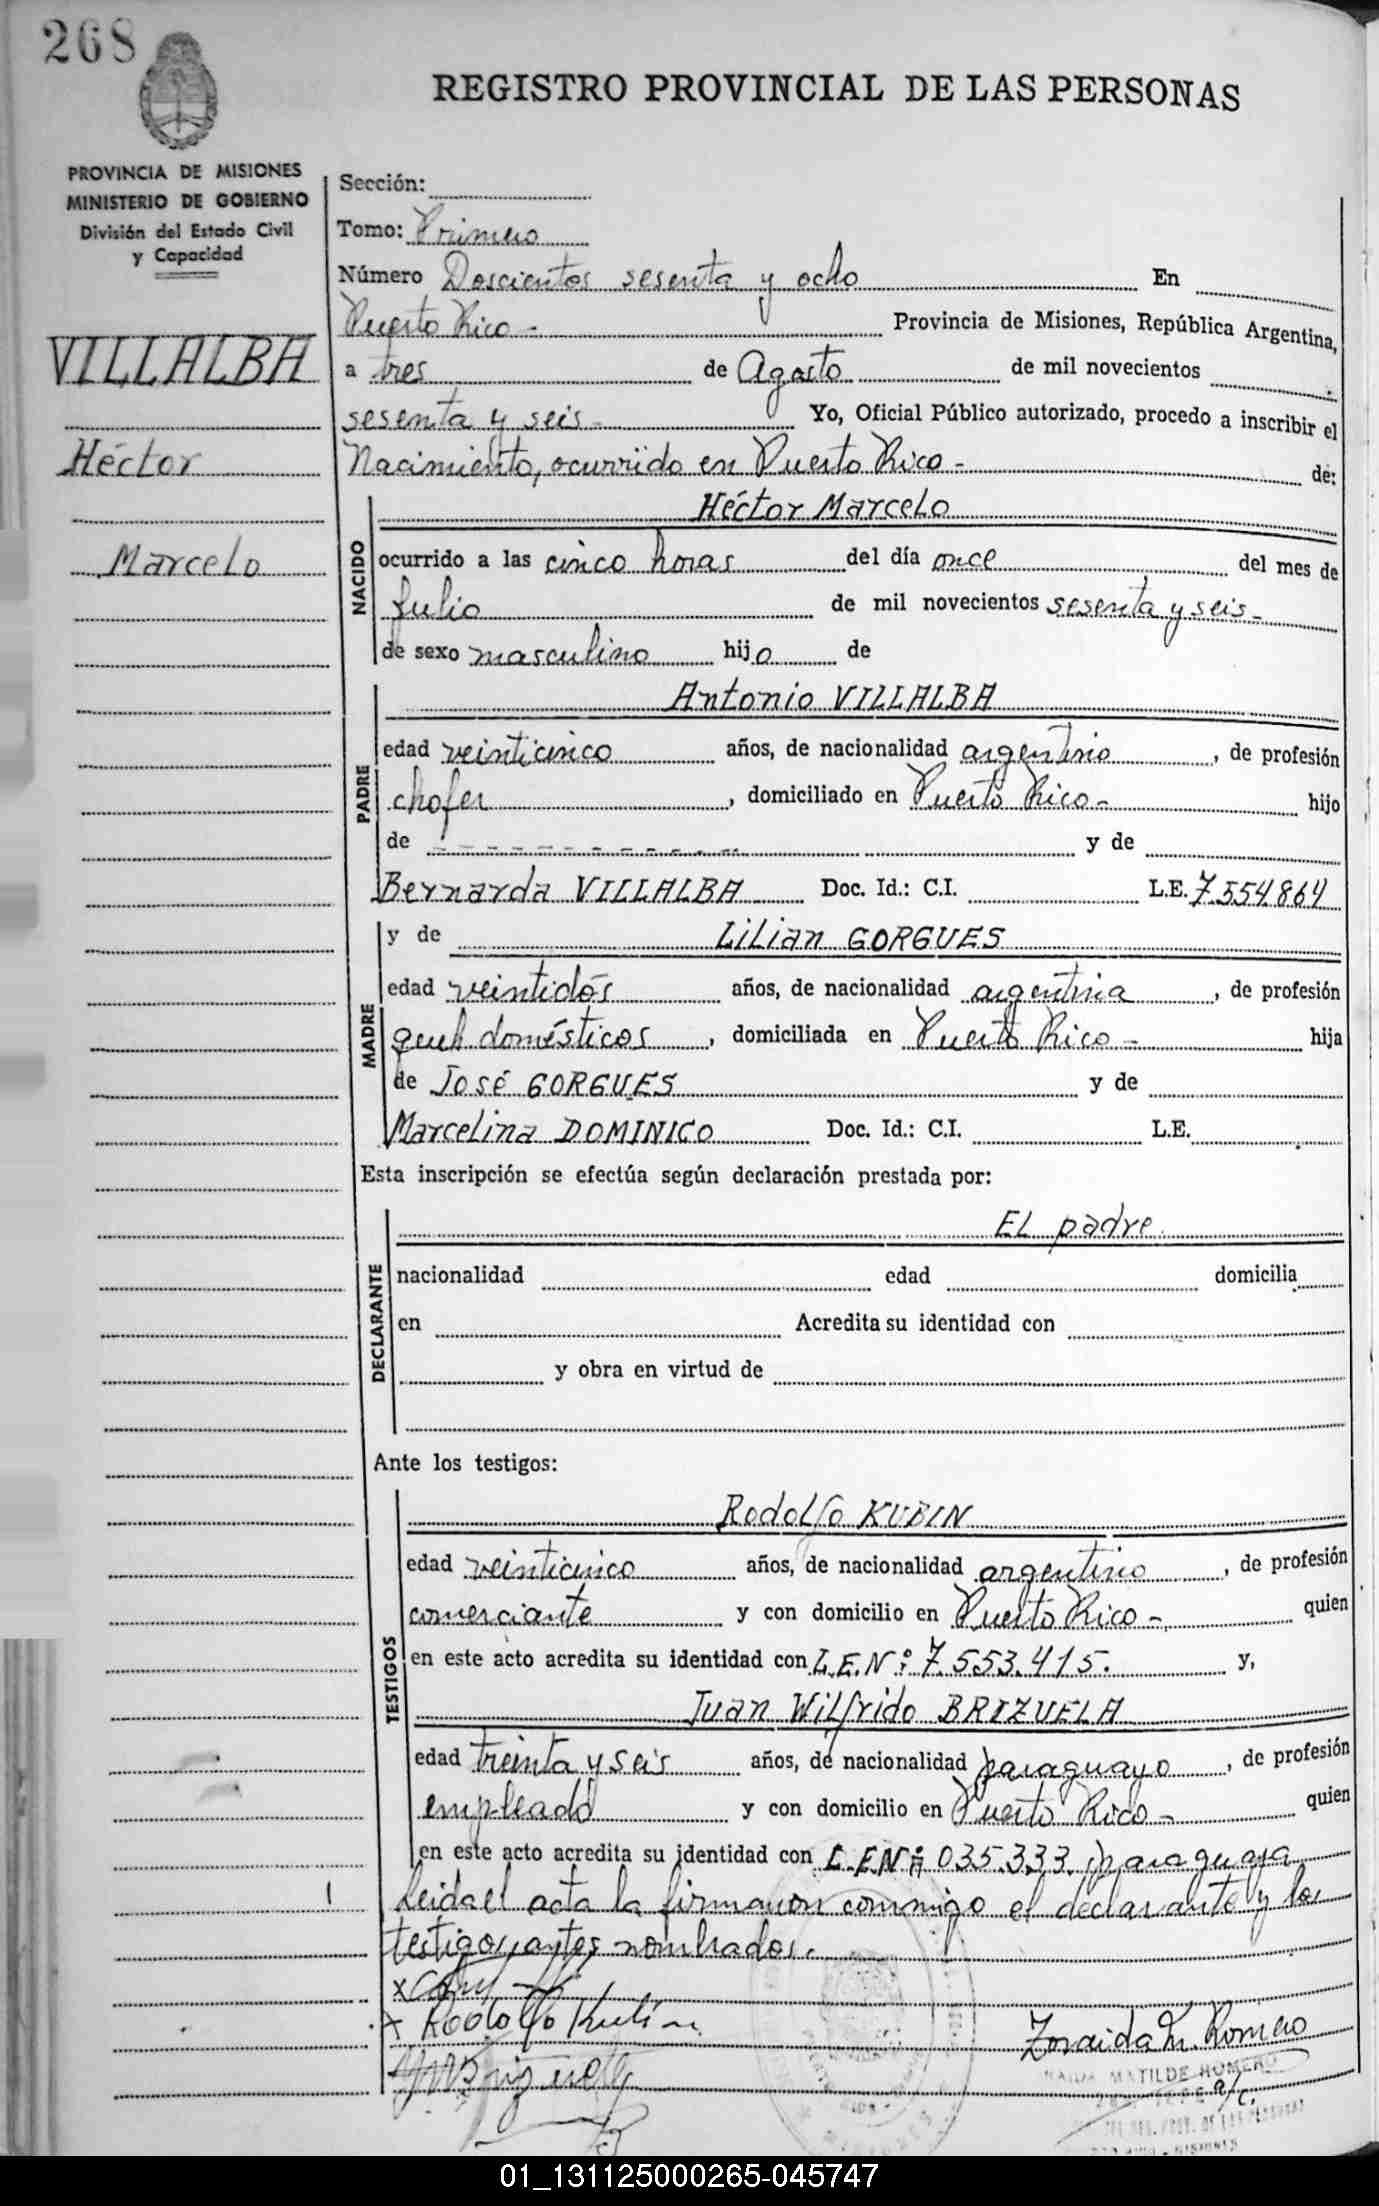 268
REGISTRO PROVINCIAL DE LAS PERSONAS
PROVINCIA DE MISIONES
MINISTERIO DE GOBIERNO
División del Estado Civil
y Capacidad
VILLALBA
Héctor
Marcelo
Sección:
Tomo: Primero
Número Doscientos sesenta y ocho En
Puerto Rico - Provincia de Misiones, República Argentina,
a tres de Agosto de mil novecientos
sesenta y seis - Yo, Oficial Público autorizado, procedo a inscribir el
Nacimiento, ocurrido en Puerto Rico - de:
NACIDO
Héctor Marcelo
ocurrido a las cinco horas del día once del mes de
Julio de mil novecientos sesenta y seis -
de sexo masculino hijo de
PADRE
Antonio VILLALBA
edad veinticinco años, de nacionalidad argentino, de profesión
chofer, domiciliado en Puerto Rico - hijo
de - - - - - - - - - - - y de
Bernarda VILLALBA Doc. Id.: C.I. L.E. 7.554.864
MADRE
y de Lilian GORGUES
edad veintidós años, de nacionalidad argentina, de profesión
domésticos, domiciliada en Puerto Rico - hija
de José GORGUES y de
Marcelina DOMINICO Doc. Id.: C.I. L.E.
Esta inscripción se efectúa según declaración prestada por:
DECLARANTE
EL padre
nacionalidad edad domicilia
en Acredita su identidad con
y obra en virtud de
Ante los testigos:
TESTIGOS
Rodolfo KUBIN
edad veinticinco años, de nacionalidad argentino, de profesión
comerciante y con domicilio en Puerto Rico - quien
en este acto acredita su identidad con L.E.Nº: 7.553.415. y,
Juan Wilfrido BRIZUELA
edad treinta y seis años, de nacionalidad paraguayo, de profesión
empleado y con domicilio en Puerto Rico - quien
en este acto acredita su identidad con C.E.Nº 035.333 paraguaya
Leida el acta la firmaron conmigo el declarante y los
testigos antes nombrados.
x Rodolfo Kubin
Zoraida M. Romero
MATILDE ROMERO
a/c.
01_131125000265-045747